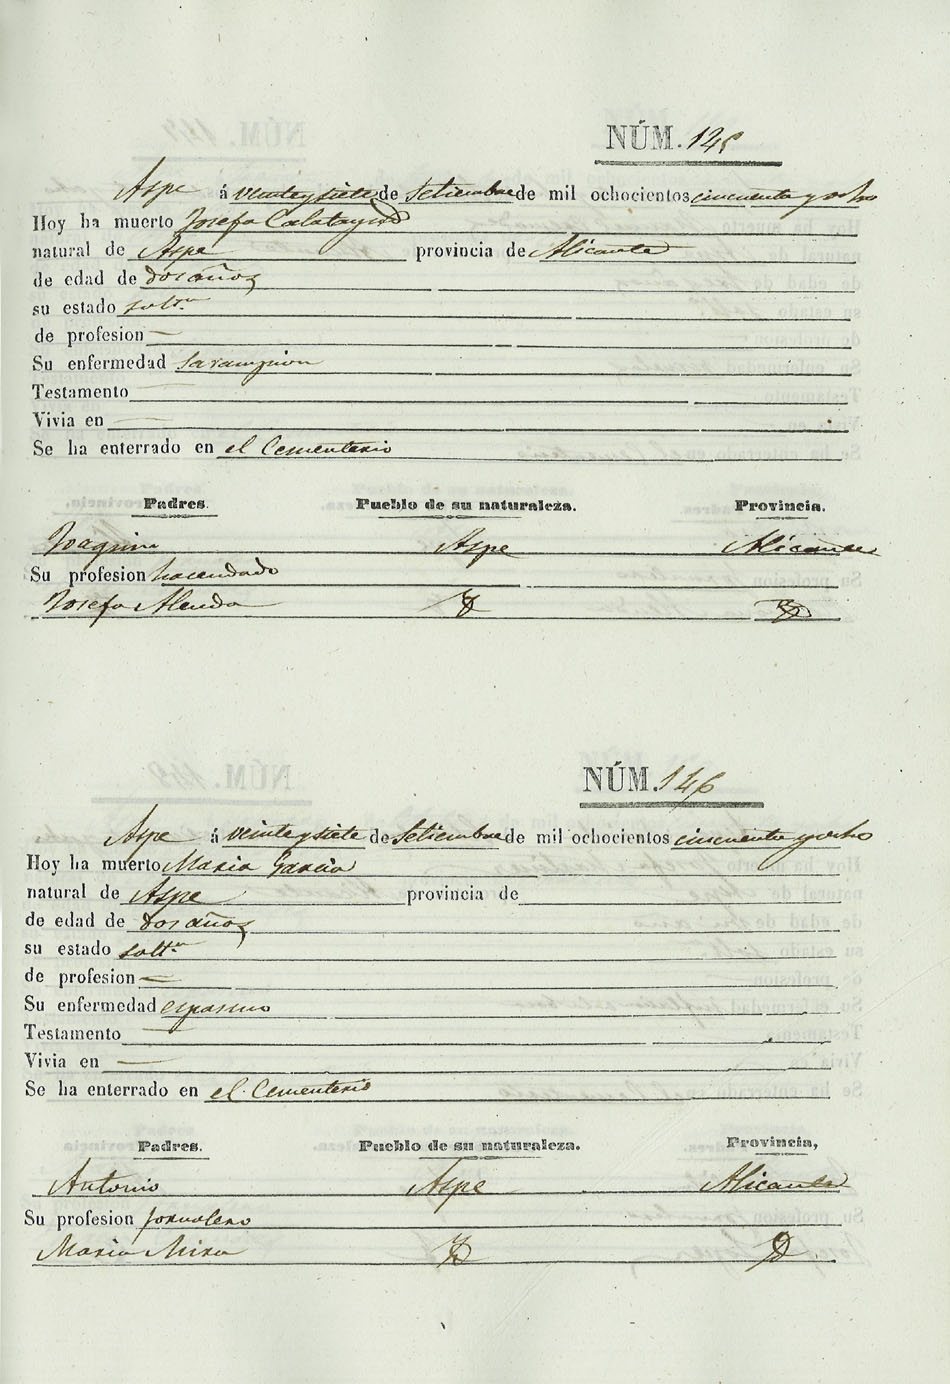 NÚM. 145
Aspe á veinte y siete de Setiembre de mil ochocientos cincuenta y ocho
Hoy ha muerto Josefa Calatayud
natural de Aspe provincia de Alicante
de edad de dos años
su estado soltª
de profesion —
Su enfermedad sarampion
Testamento —
Vivia en —
Se ha enterrado en el Cementerio
Padres. Pueblo de su naturaleza. Provincia.
Joaquin Aspe Alicante
Su profesion hacendado
Josefa Alenda
NÚM. 146
Aspe á veinte y siete de Setiembre de mil ochocientos cincuenta y ocho
Hoy ha muerto Maria Garcia
natural de Aspe provincia de
de edad de dos años
su estado soltª
de profesion —
Su enfermedad espasmo
Testamento —
Vivia en —
Se ha enterrado en el Cementerio
Padres. Pueblo de su naturaleza. Provincia,
Antonio Aspe Alicante
Su profesion jornalero
Maria Mira